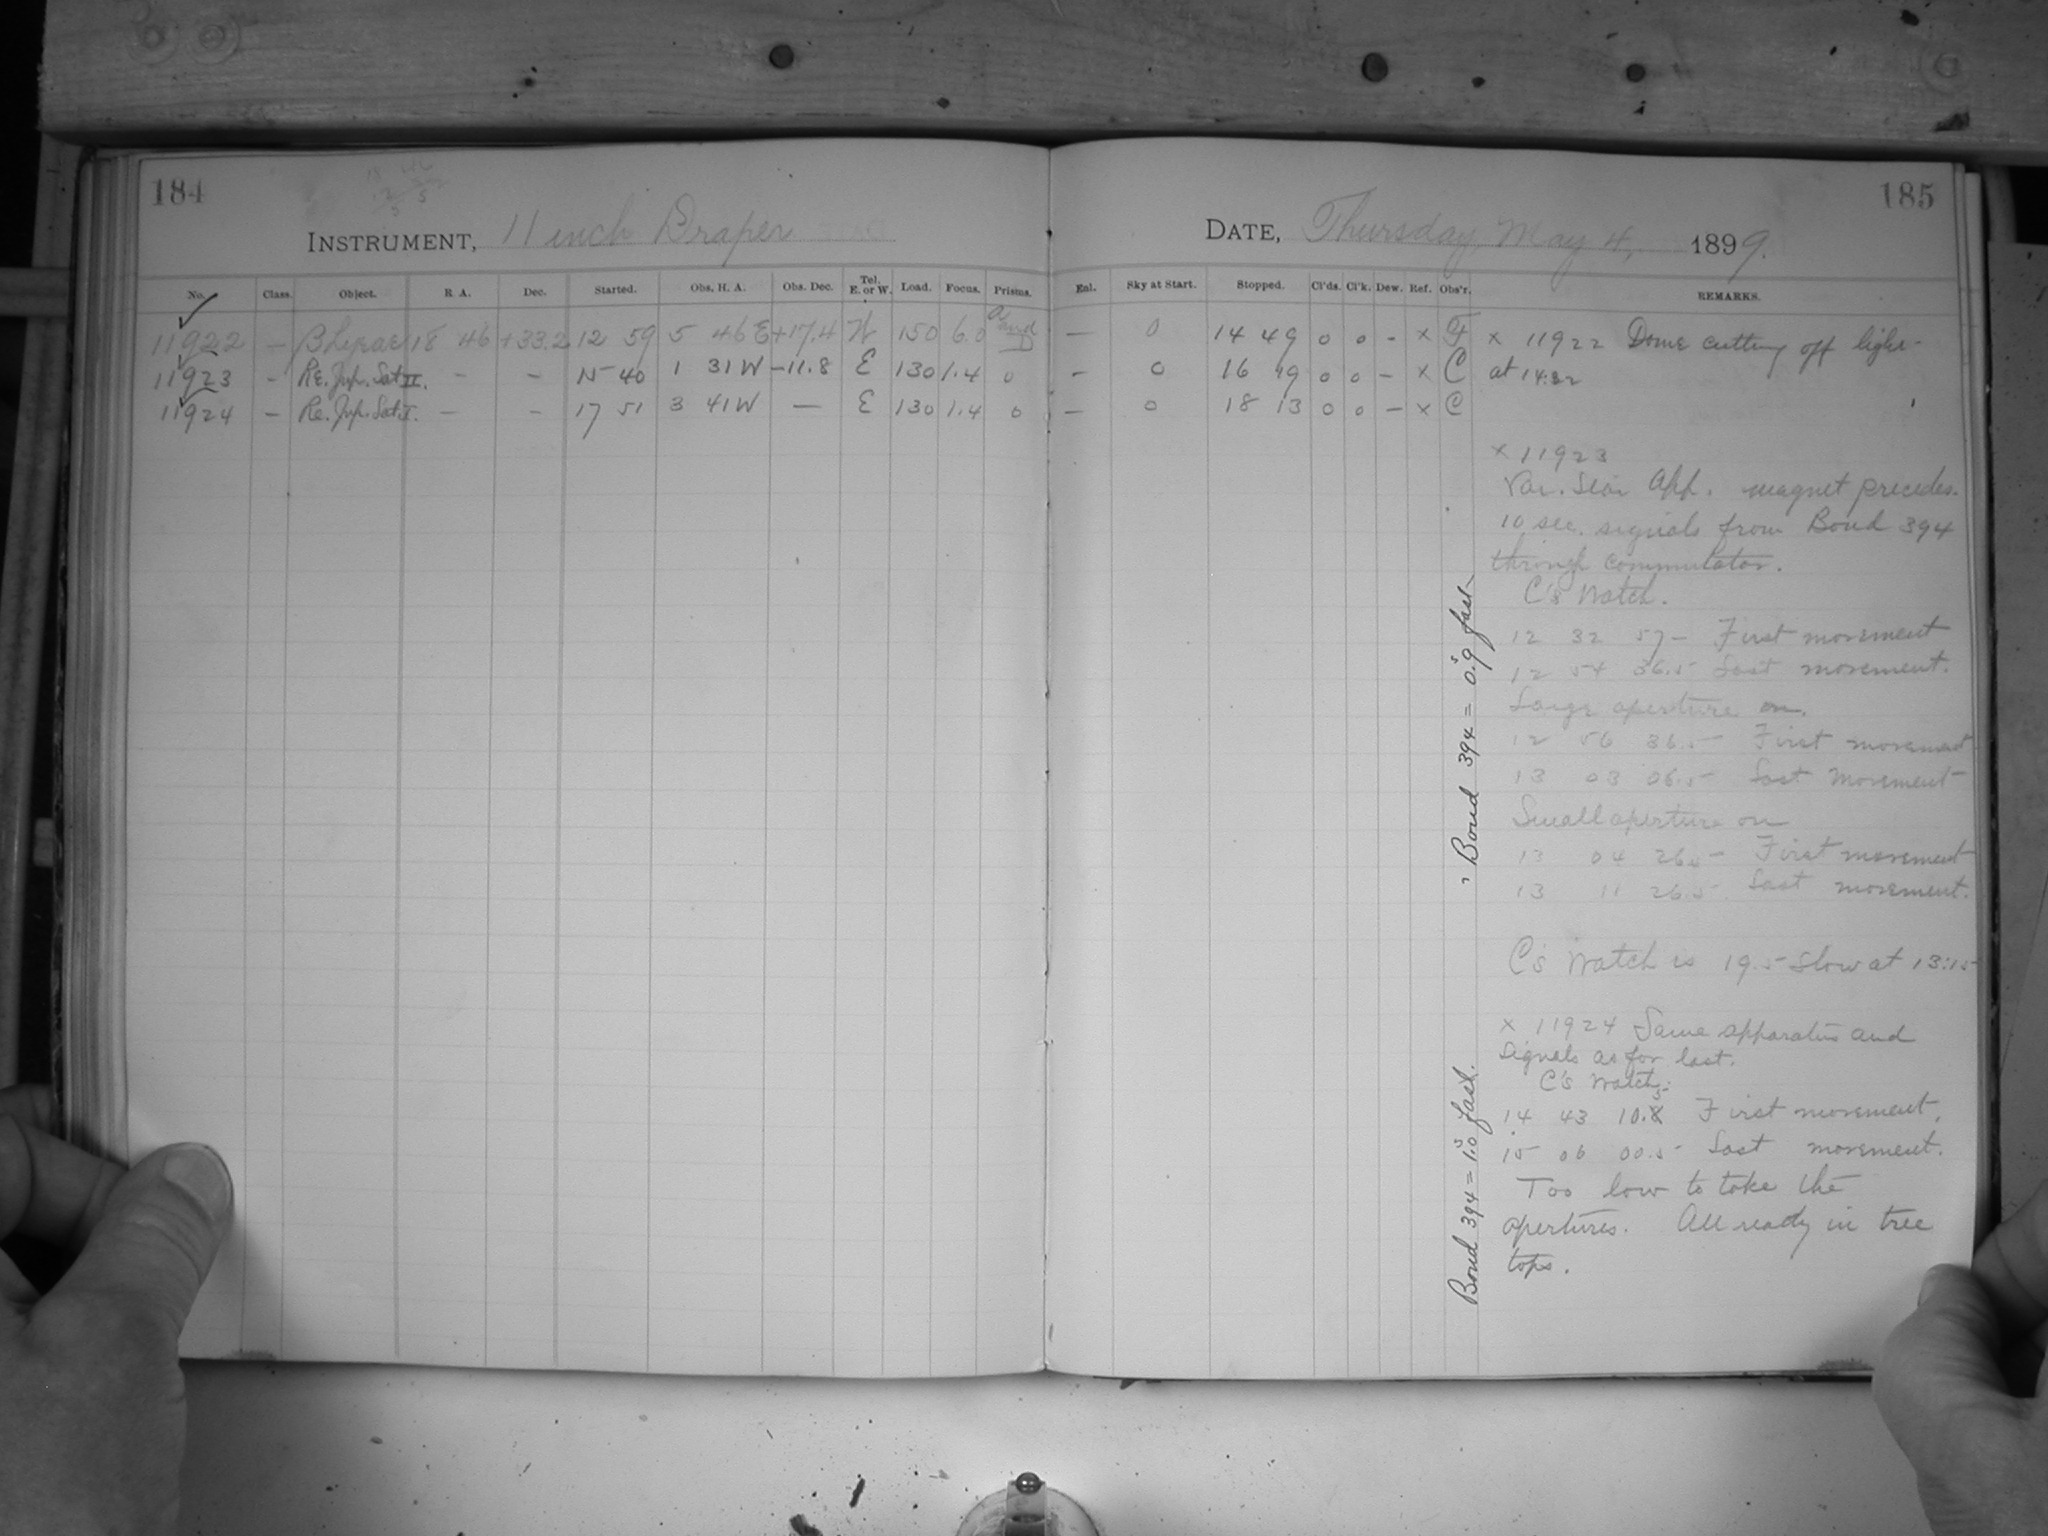 184
INSTRUMENT, 11 inch Draper
No. Class. Object. R. A. Dec. Started. Obs. H. A. Obs. Dec. Tel. E. or W. Load. Focus. Prisms.
11922 — β Lyrae 18 46 +33.2 12 59 5 46 E +17.4 W 150 6.0
11923 - Re. Jup. Sat II. - - 15 40 1 31 W -11.8 E 130 1.4 0
11924 — Re. Jup. Sat. I. - - 17 51 3 41 W — E 130 1.4 0
185
DATE, Thursday, May 4, 1899.
Enl. Sky at Start. Stopped. Cl'ds. Cl'k. Dew. Ref. Obs'r. REMARKS.
— 0 14 49 0 0 - × F × 11922 Dome cutting off light
- 0 16 19 0 0 - × C at 14:32
— 0 18 13 0 0 - × C
× 11923
Var. Star App. magnet precedes.
10 sec. signals from Bond 394
through commutator.
C's Watch.
12 32 57- First movement
12 54 36.5 Last movement.
Large aperture on.
12 56 36.5 First movement
13 03 06.5 Last movement
Small aperture on
13 04 26.5 First movement
13 11 26.5 Last movement.
C's Watch is 19.5 slow at 13:15
× 11924 Same apparatus and
signals as for last.
C's Watch:
14 43 10.5 First movement,
15 06 00.5 Last movement.
Too low to take the
apertures. All ready in tree
tops.
Bond 394 = 0.9s fast
Bond 394 = 1.0s fast.